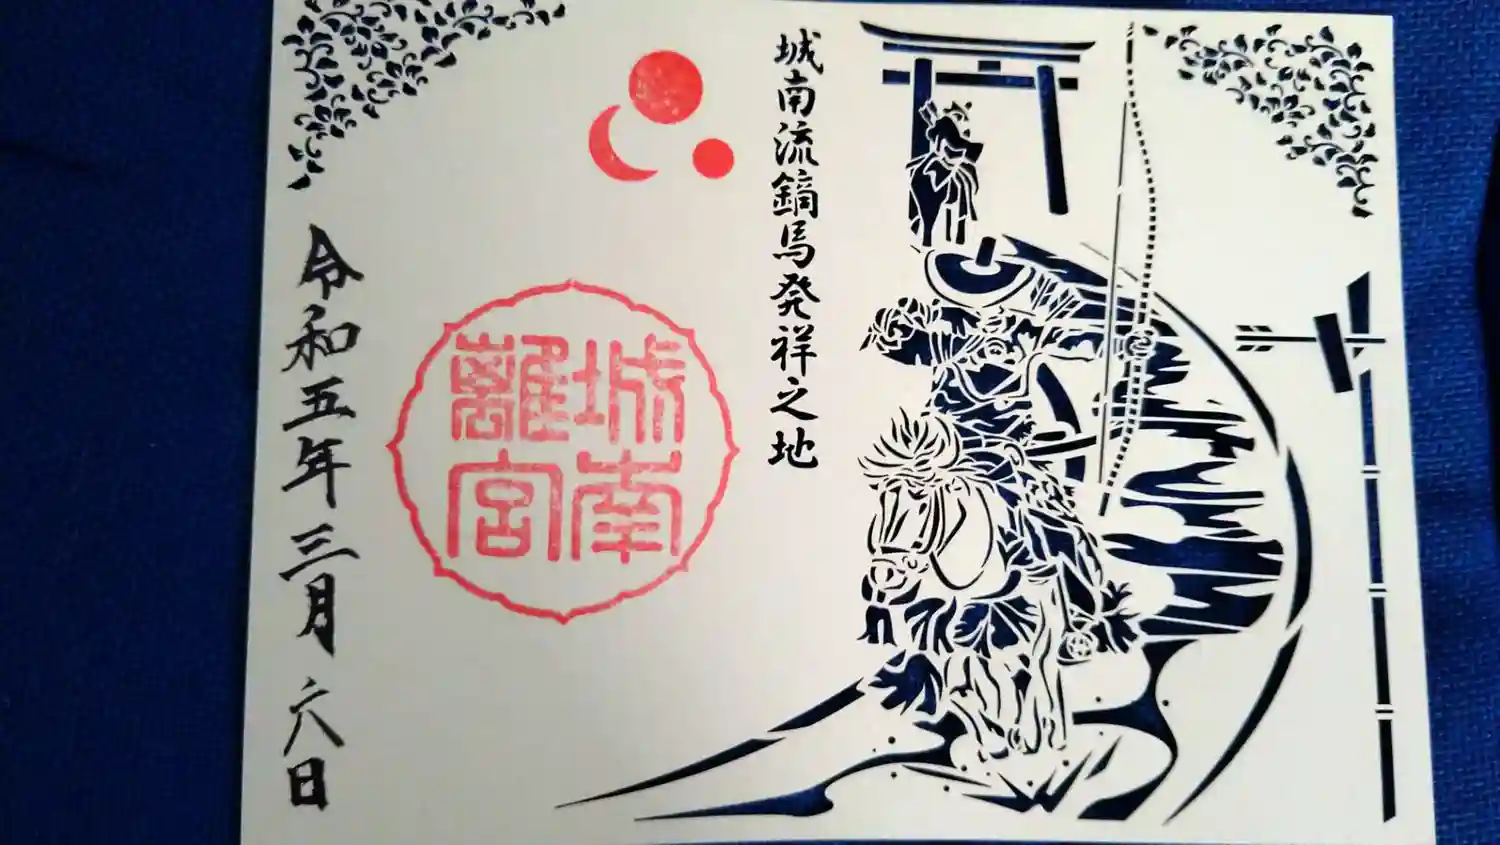 城南流鏑馬発祥之地
城南
離宮
令和五年三月六日